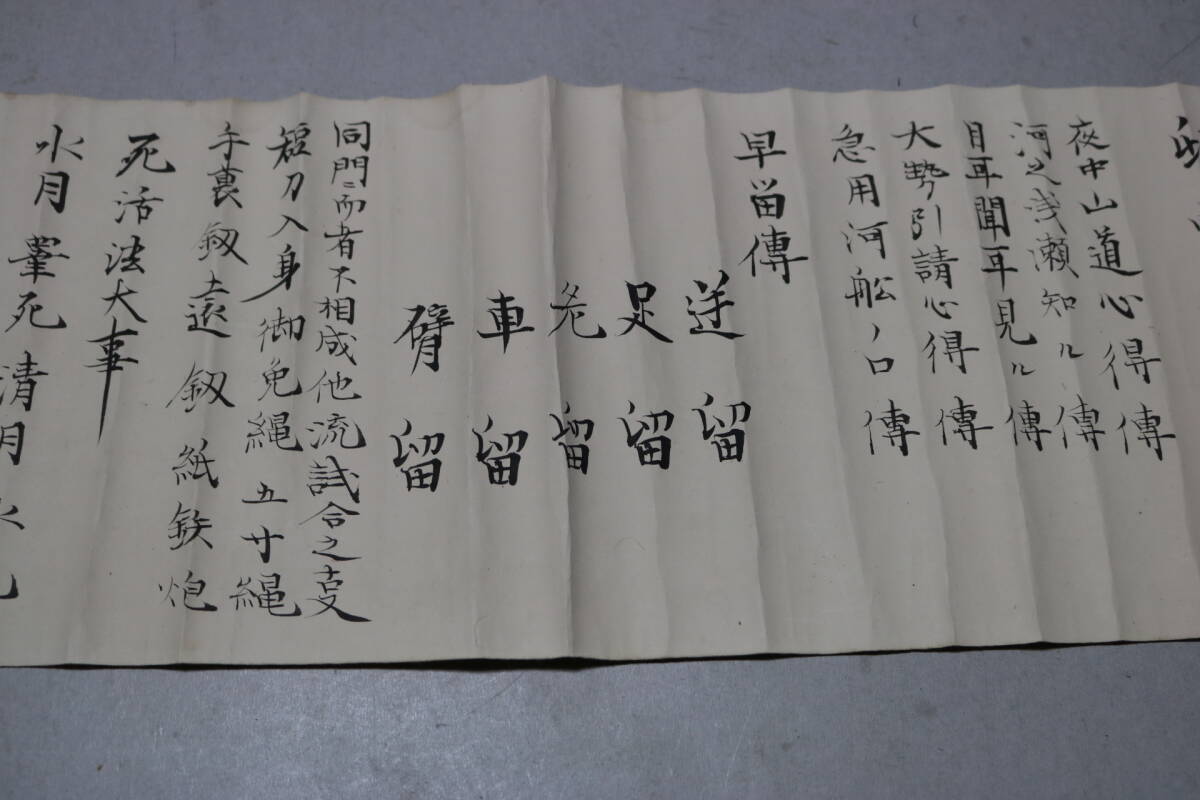 夜中山道心得傳
河之浅瀬知ル傳
目耳聞耳見ル傳
大勢引請心得傳
急用河舩ノ口傳
早留傳
逆留
足留
留
車留
臂留
同門ニ而者不相成他流試合之叓
短刀入身御免縄 五寸縄
手裏釼遠釼紙鉄炮
死活法大事
水月 死 清月